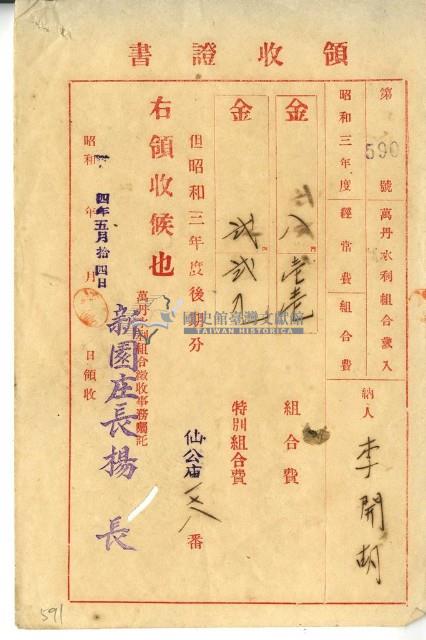 領收證書
第 590 號 萬丹水利組合歲入
昭和三年度 經常費 組合費
納人 李開胡
金 八 壱壱 組合費
金 弐弐 特別組合費
但昭和三年度後期分 仙公庙 番
右領收候也
萬丹水利組合徵收事務囑託
昭和 年 月 日領收
四年五月拾四日
新園庄長楊 長
國史館臺灣文獻館
TAIWAN HISTORICA
591